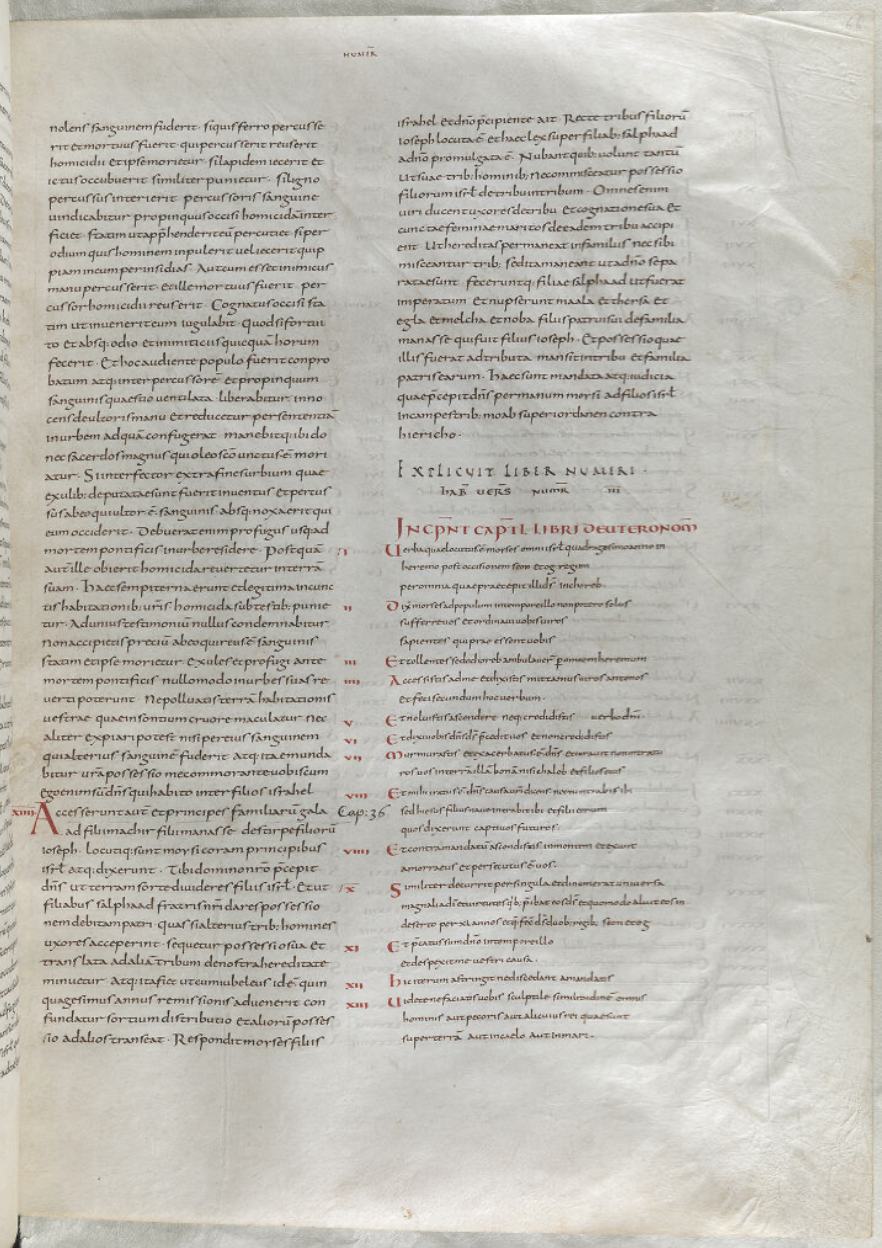 NUMER̄
66
nolens sanguinem fuderit · siquis ferro percusse
rit et mortuus fuerit · qui percusserit reus erit
homicidii et ipse morietur · si lapidem iecerit et
ictus occubuerit similiter punietur · si ligno
percussus interierit percussoris sanguine
uindicabitur propinquus occisi homicidā inter
ficiet · statim ut apphenderit eū percutiet si per
odium quis hominem inpulerit uel iecerit quip
piam in eum per insidias · Aut cum esset inimicus
manu percusserit et ille mortuus fuerit · per
cussor homicidii reus erit · Cognatus occisi sta
tim ut inuenerit eum iugulabit · quod si fortui
to et absq; odio et inimicitiis quicquā horum
fecerit · Et hoc audiente populo fuerit conpro
batum atq; inter percussorē et propinquum
sanguinis quaestio uentilata · liberabitur inno
cens de ultoris manu et reducetur per sententiā
in urbem ad quā confugerat manebitq; ibi do
nec sacerdos magnus qui oleo scō unctus ē mori
atur · Si interfector extra fines urbium quae
exulib; deputatae sunt fuerit inuentus et percus
sus ab eo qui ultor ē sanguinis absq; noxa erit qui
eum occiderit · Debuerat enim profugus usq; ad
mortem pontificis in urbe residere · Postquā
aut ille obierit homicida reuertetur in terrā
suam · Haec sempiterna erunt et legitima in cunc
tis habitationib; uris homicida sub testib; punie
tur · Ad unius testimoniū nullus condemnabitur
non accipietis preciū ab eo qui reus ē sanguinis
statim et ipse morietur · Exules et profugi ante
mortem pontificis nullo modo in urbes suas re
uerti poterunt · Ne polluatis terrā habitationis
uestrae quae insontium cruore maculatur nec
aliter expiari potest nisi per eius sanguinem
qui alterius sanguinē fuderit atq; ita emunda
bitur ura possessio me commorante uobiscum
ego enim sū dns qui habito inter filios israhel
xiiii Accesserunt aut et principes familiarū gala Cap: 36
ad filii machir filii manasse de stirpe filiorū
ioseph · locutiq; sunt morsi coram principibus
isrl atq; dixerunt · Tibi domino nro p̄cepit
dns ut terram sorte diuideres filiis isrl · Et ut
filiabus salphaad fratris nri dares possessio
nem debitam patri · quas si alterius trib; homines
uxores acceperint · sequetur possessio sua et
translata ad aliā tribum de nostra hereditate
minuetur · Atq; ita fiet ut cum iubeleus id ē quin
quagesimus annus remissionis aduenerit con
fundatur sortium distributio et aliorū posses
sio ad alios transeat · Respondit morses filiis
israhel et dno p̄cipiente ait · Recte tribus filiorū
ioseph locuta ē et haec lex super filiab; salphaad
a dno promulgata ē · Nubant quib; uolunt tantū
ut suae trib; hominib; ne commisceatur possessio
filiorum isrl de tribu in tribum · Omnes enim
uiri ducent uxores de tribu et cognatione sua et
cunctae feminae maritos de eadem tribu accipi
ent · Ut hereditas permaneat in familiis nec sibi
misceantur trib; sed ita maneant ut a dno sepa
ratae sunt · feceruntq; filiae salphaad ut fuerat
imperatum · Et nupserunt maala et thersa et
egla et melcha et noba filiis patrui sui de familia
manasse qui fuit filius ioseph · Et possessio quae
illis fuerat adtributa mansit in tribu et familia
patris earum · Haec sunt mandata atq; iudicia
quae p̄cepit dns per manum morsi ad filios isrl
in campestrib; moab super iordanen contra
hiericho ·
EXPLICUIT LIBER NUMERI ·
HAB̄ UERS̄ NUM̄R III
INCP̄NT CAPĪTL LIBRI DEUTERONOM̄
i Uerba quae locutus ē morses omni isrl quadragesimo anno in
heremo post occisionem seon et og regum
per omnia quae praecepit illi ds in choreb
ii Dix morses ad populum in tempore illo non potero solus
sufferre uos et ordinaui uobis uiros
sapientes qui prae essent uobis
iii Et tollentes sede choreb ambulauer̄ p omnem heremum
iiii Accessistis ad me et dixistis mittamus uiros ante nos
et feci secundum hoc uerbum ·
v Et noluistis ascendere neq; credidistis uerbo dni ·
vi Et dixi uobis dns ds p̄cedit uos et non credidistis
vii Murmurastis et exacerbatus ē dns et iurauit non intra
ros uos in terrā illā bonā nisi chaleb et filios eius
viii Et mihi iratus ē dns causa urā dicens nec tu intrabis ibi
sed hiesus filius naue intrabit ibi et filii eorum
quos dixerunt captiuos futuros ·
viiii Et contra mandatū ascendistis in montem et exiit
amorraeus et persecutus ē uos ·
x Similiter decurrit per singula et dinumerat uniuersa
deserto per xl annos
xi Et p̄catus sum dnm in tempore illo
et despexit me uestri causa ·
xii Hic iterum astringit ne discedant a mandatis
xiii Uidete ne faciatis uobis sculptile similitudinē omnis
hominis aut pecoris aut alicuius rei quae sunt
super terrā aut in caelo aut in mari ·